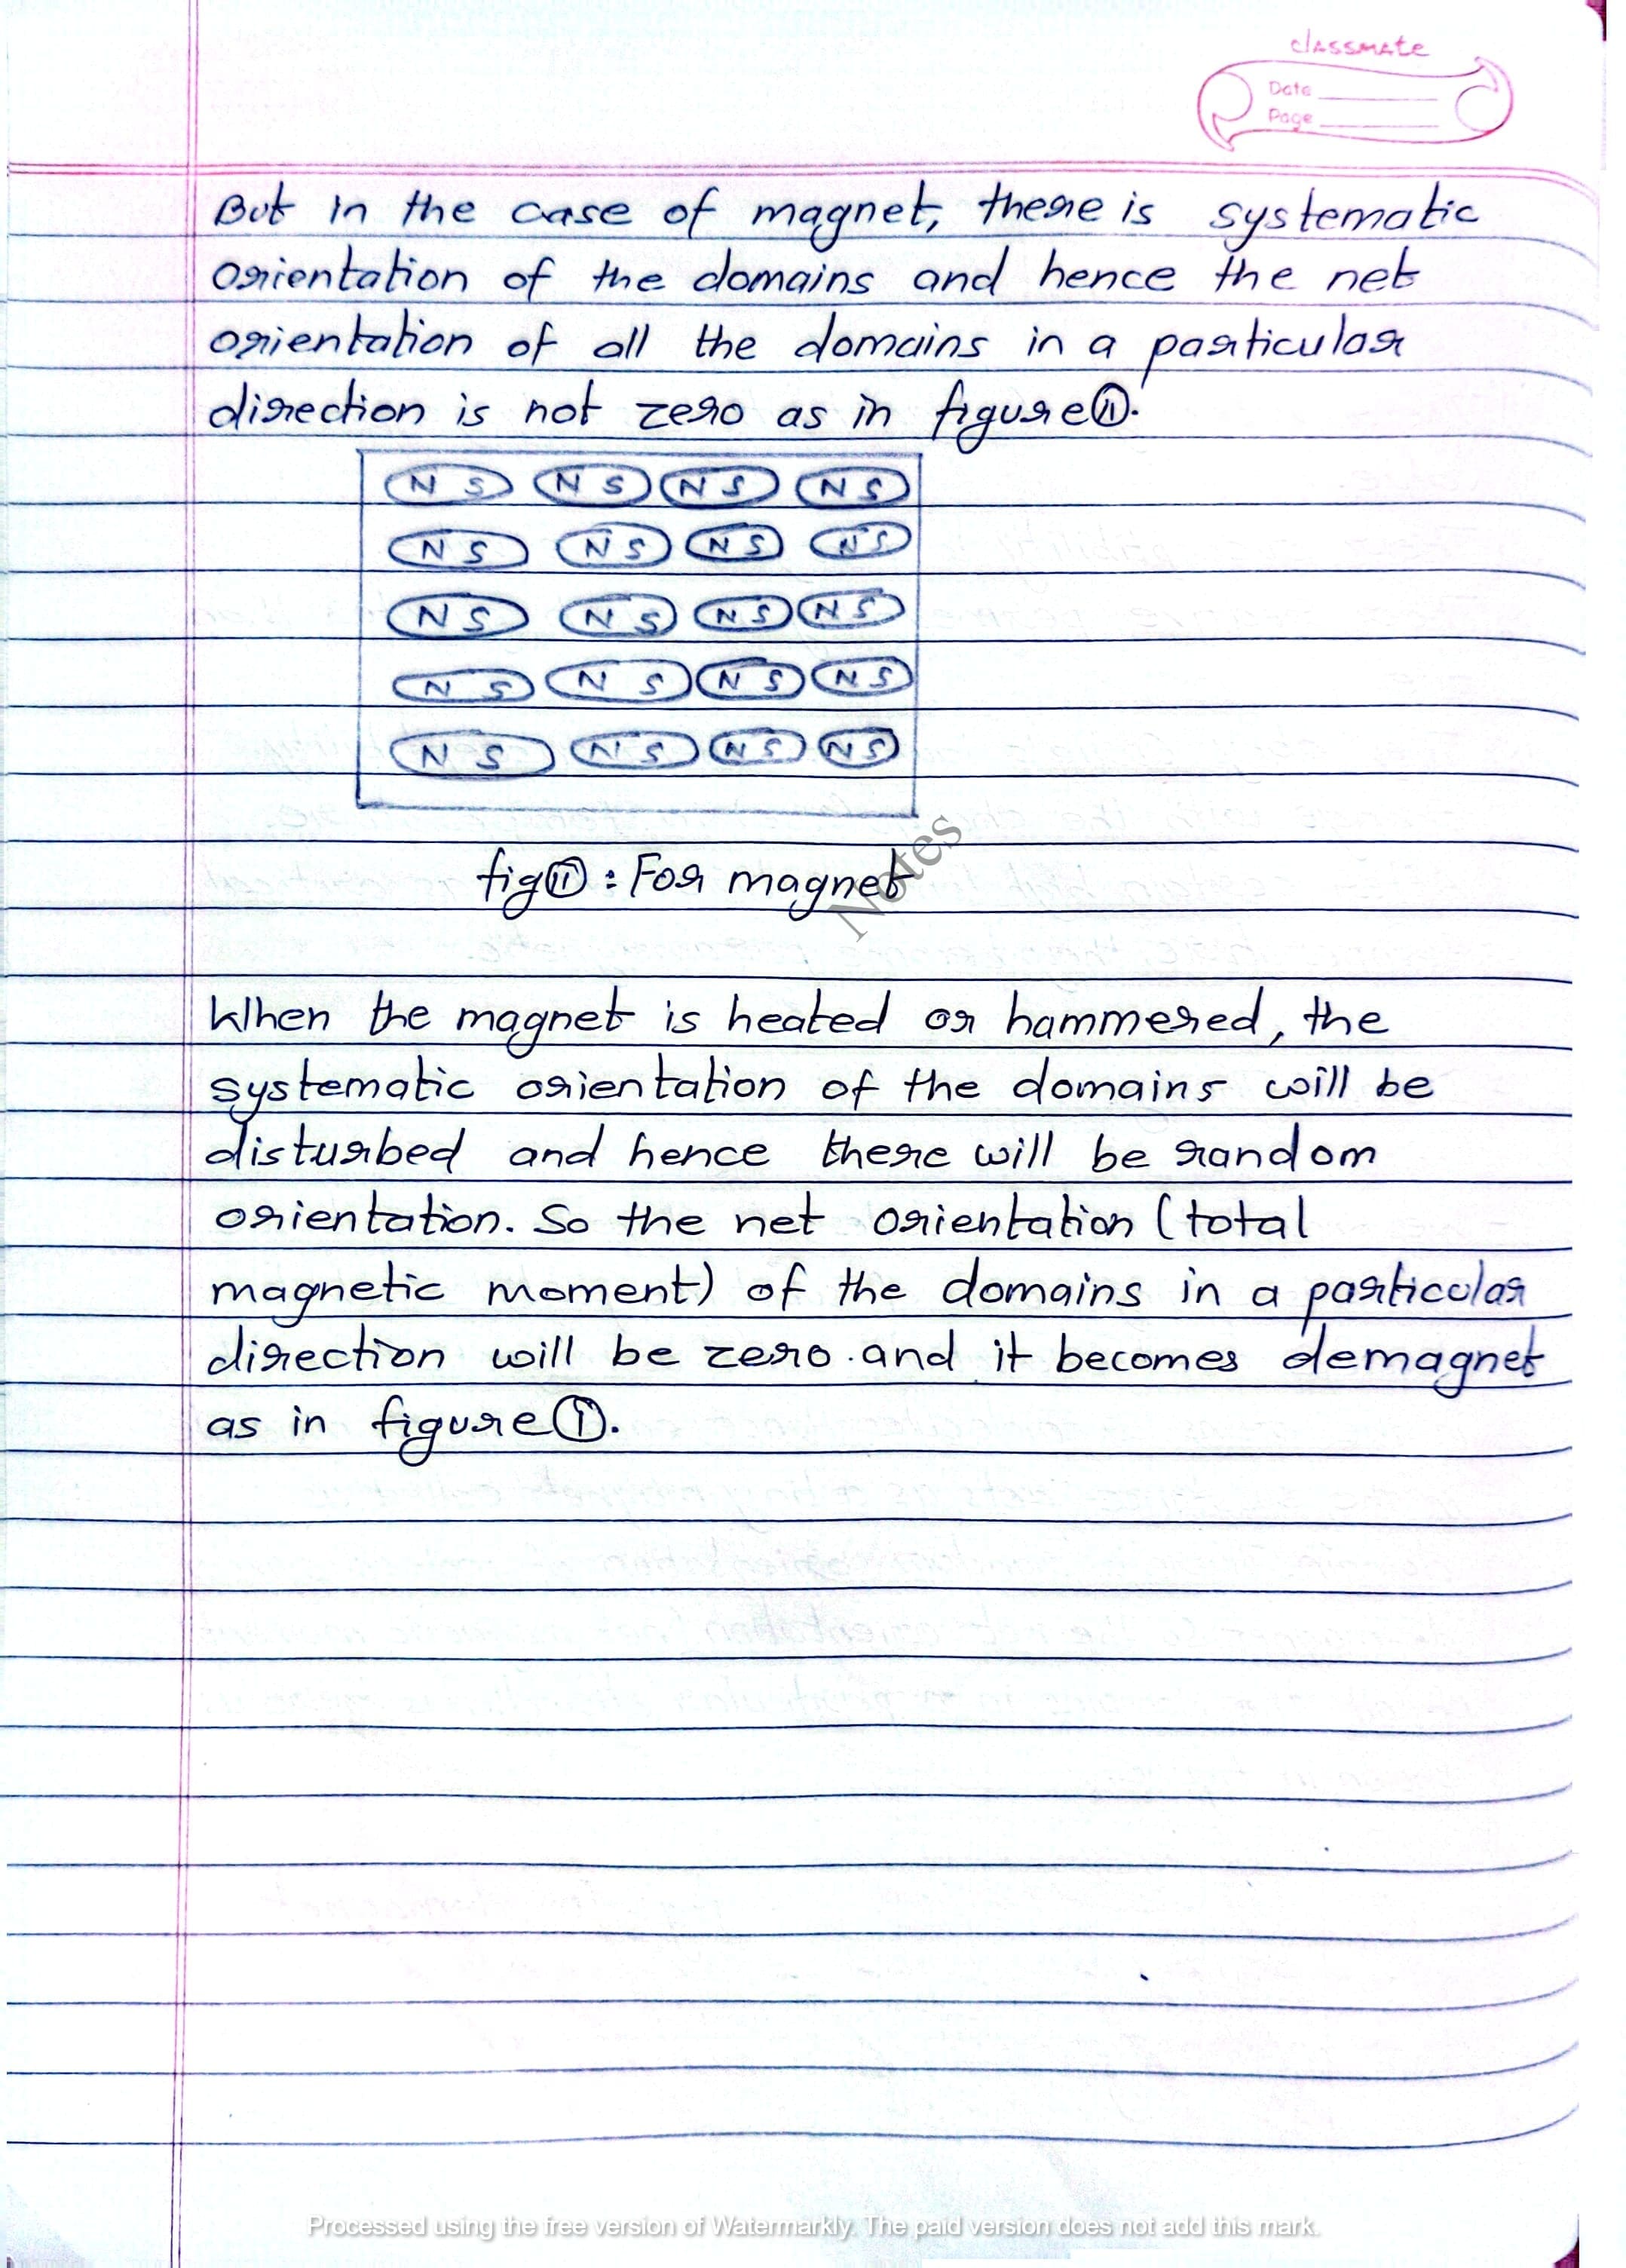 classmate
Date
Page
But in the case of magnet, there is systematic
orientation of the domains and hence the net
orientation of all the domains in a particular
direction is not zero as in figure ⓘⓘ.
N S N S N S N S
N S N S N S N S
N S N S N S N S
N S N S N S N S
N S N S N S N S
fig ⓘⓘ : For magnet
Notes
When the magnet is heated or hammered, the
systematic orientation of the domains will be
disturbed and hence there will be random
orientation. So the net orientation (total
magnetic moment) of the domains in a particular
direction will be zero and it becomes demagnet
as in figure ⓘ.
Processed using the free version of Watermarkly. The paid version does not add this mark.